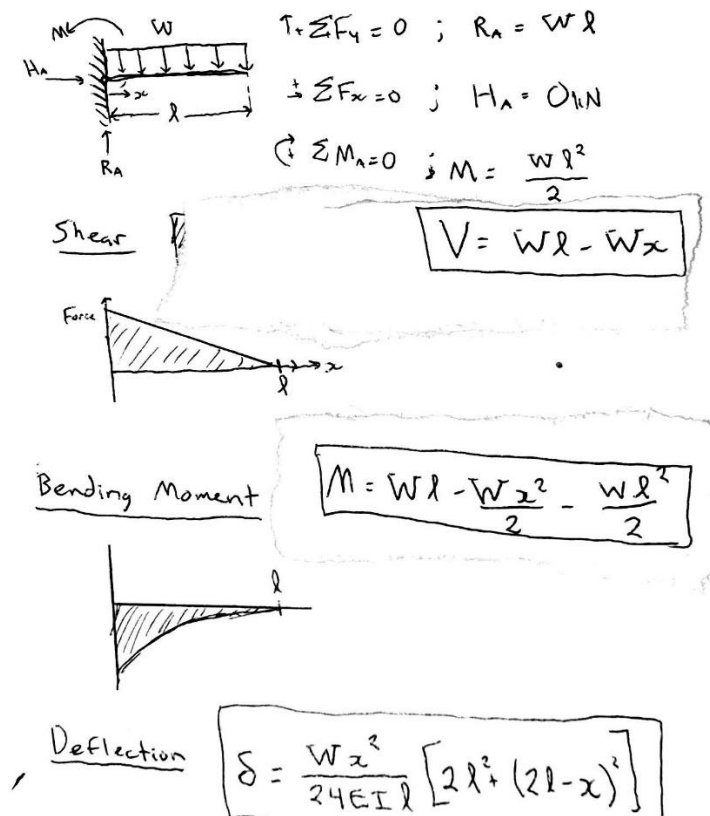 M W ↑+ ΣFy = 0 ; RA = Wl
HA x l →+ ΣFx = 0 ; HA = 0 kN
RA ↻+ ΣMA = 0 ; M = Wl²/2
Shear V = Wl - Wx
Force
l x
Bending Moment M = Wl - Wx²/2 - Wl²/2
l
Deflection δ = Wx²/24EIl [2l² + (2l-x)²]